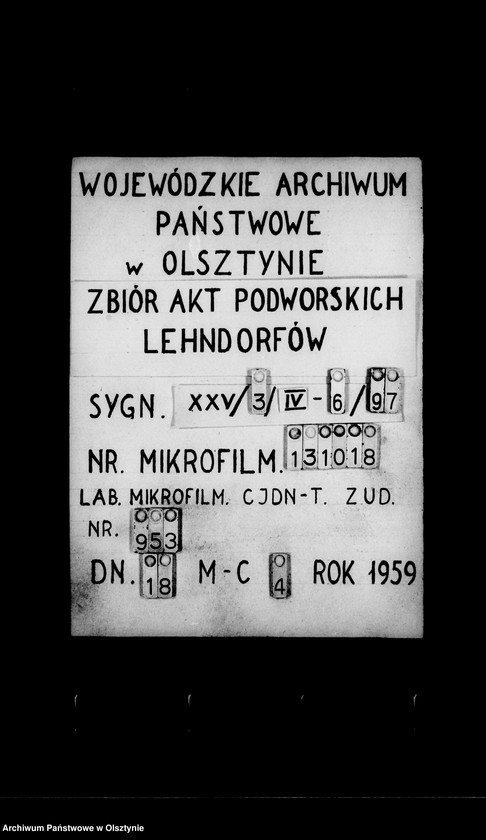 WOJEWÓDZKIE ARCHIWUM
PAŃSTWOWE
w OLSZTYNIE
ZBIÓR AKT PODWORSKICH
LEHNDORFÓW
SYGN. XXV/3/IV-6/97
NR. MIKROFILM. 131018
LAB. MIKROFILM. CJDN-T. ZUD.
NR. 953
DN. 18 M-C 4 ROK 1959
Archiwum Państwowe w Olsztynie